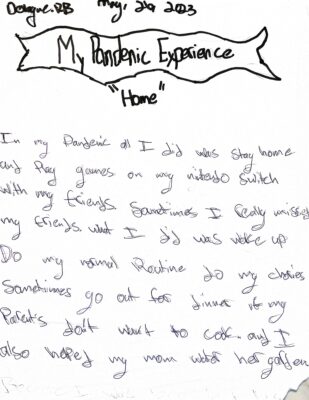 Dezague.RB May, 26 2023
My Pandemic Experience
"Home"
In my Pandemic all I did was stay home
and Play games on my nintedo Switch
with my friends. Sometimes I really missed
my friends. what I did was woke up
Do my normal Routine do my chories
Sometimes go out for dinner if my
Parents don't want to cook. and I
also helped my mom water her garden